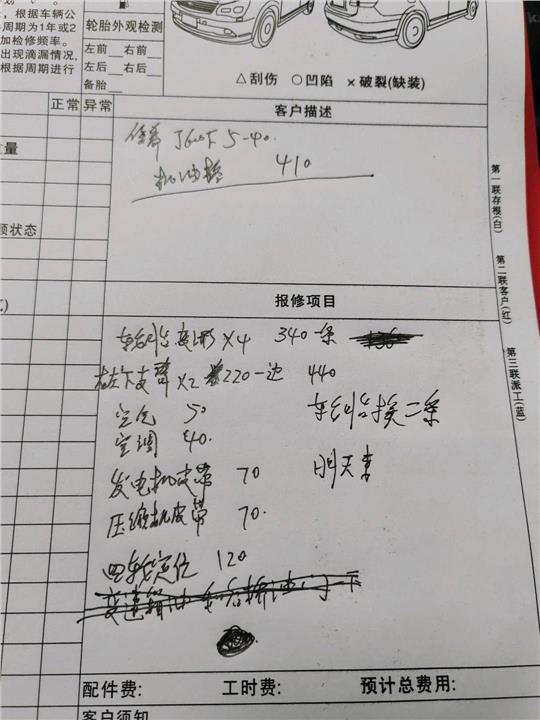 ，根据车辆公
周期为1年或2
加检修频率。
出现滴漏情况，
根据周期进行
轮胎外观检测
左前 右前
左后 右后
备胎
△刮伤 ○凹陷 ×破裂(缺装)
正常 异常
客户描述
5-40.
机油格 410
量
状态
第一联存根(白)
第二联客户(红)
第三联派工(蓝)
报修项目
轮胎变形 ×4 340一条
左右下支臂 ×2 220一边 440
空气 50
车轮胎换二条
空调 40.
发电机皮带 70
明天来
压缩机皮带 70.
四轮定位 120
配件费: 工时费: 预计总费用:
客户须知